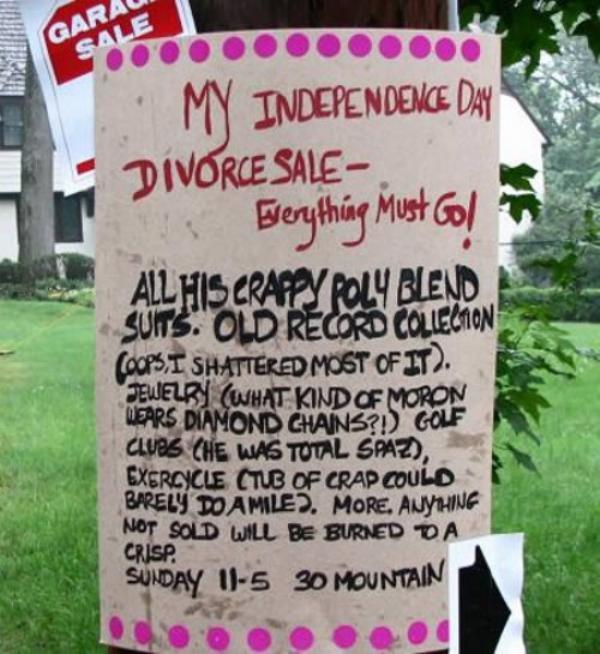 GARAGE
SALE
MY INDEPENDENCE DAY
DIVORCE SALE-
Everything Must Go!
ALL HIS CRAPPY POLY BLEND
SUITS. OLD RECORD COLLECTION
(OOPS, I SHATTERED MOST OF IT).
JEWELRY (WHAT KIND OF MORON
WEARS DIAMOND CHAINS?!) GOLF
CLUBS (HE WAS TOTAL SPAZ),
EXERCYCLE (TUB OF CRAP COULD
BARELY DO A MILE). MORE. ANYTHING
NOT SOLD WILL BE BURNED TO A
CRISP.
SUNDAY 11-5 30 MOUNTAIN